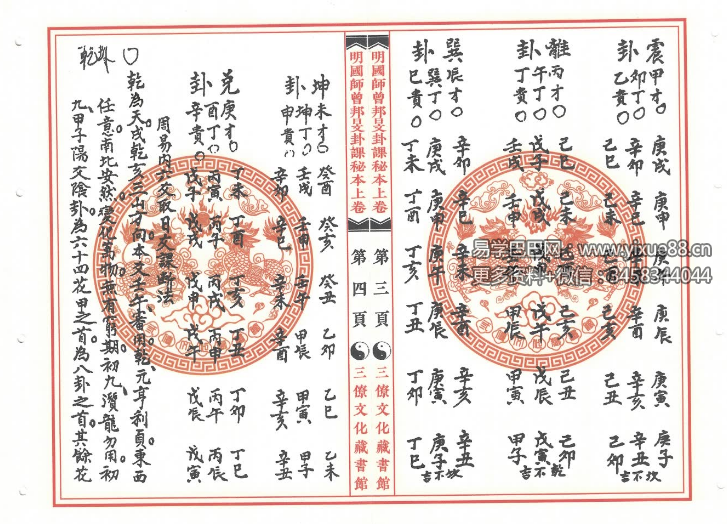 震甲才○ 庚戌 庚申 庚午 庚辰 庚寅 庚子
卯丁○ 辛卯 辛巳 辛酉 辛亥 辛丑 坎
卦乙貴○ 己丑 己亥 己卯 吉不
離丙才○ 己巳 己未 己亥 己丑 己卯 乾
午丁○ 戊子 戊戌 戊午 戊辰 戊寅 不
卦丁貴○ 壬戌 壬申 甲辰 甲寅 甲子 吉
巽辰才○ 辛卯 辛巳 辛未 辛酉 辛亥 辛丑
巽丁○ 庚戌 庚申 庚午 庚辰 庚寅 庚子 不坎
卦巳貴○ 丁未 丁酉 丁亥 丁丑 丁卯 丁巳 吉
明國師曾邦旻卦課秘本上卷 第三頁 三僚文化藏書館
明國師曾邦旻卦課秘本上卷 第四頁 三僚文化藏書館
坤未才○ 癸酉 癸亥 癸丑 乙卯 乙巳 乙未
坤丁○ 壬戌 壬申 壬午 甲辰 甲寅 甲子
卦申貴○ 辛卯 辛巳 辛未 辛酉 辛亥 辛丑
兌庚才○ 丁未 丁酉 丁亥 丁丑 丁卯 丁巳
酉丁○ 丙寅 丙戌 丙申 丙午 丙辰
卦辛貴○ 戊子 戊戌 戊申 戊午 戊辰 戊寅
周易內六爻取日爻課斷法
乾為天戌乾亥三山方向本爻壬午審用乾。元亨利貞東西
任意。南北安然。變化萬物。無有窮期。初九。潛龍勿用。初
九。甲子陽爻陰卦為六十四花甲之首。為八卦之首。其餘花
乾卦
易学巴巴网-www.yixue88.cn